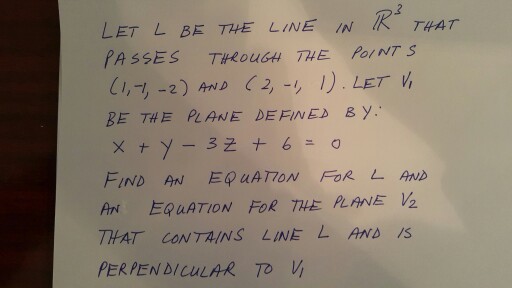 LET L BE THE LINE IN ℝ³ THAT
PASSES THROUGH THE POINTS
(1,-1,-2) AND (2,-1, 1). LET V₁
BE THE PLANE DEFINED BY:
X + Y - 3Z + 6 = 0
FIND AN EQUATION FOR L AND
AN EQUATION FOR THE PLANE V2
THAT CONTAINS LINE L AND IS
PERPENDICULAR TO V₁